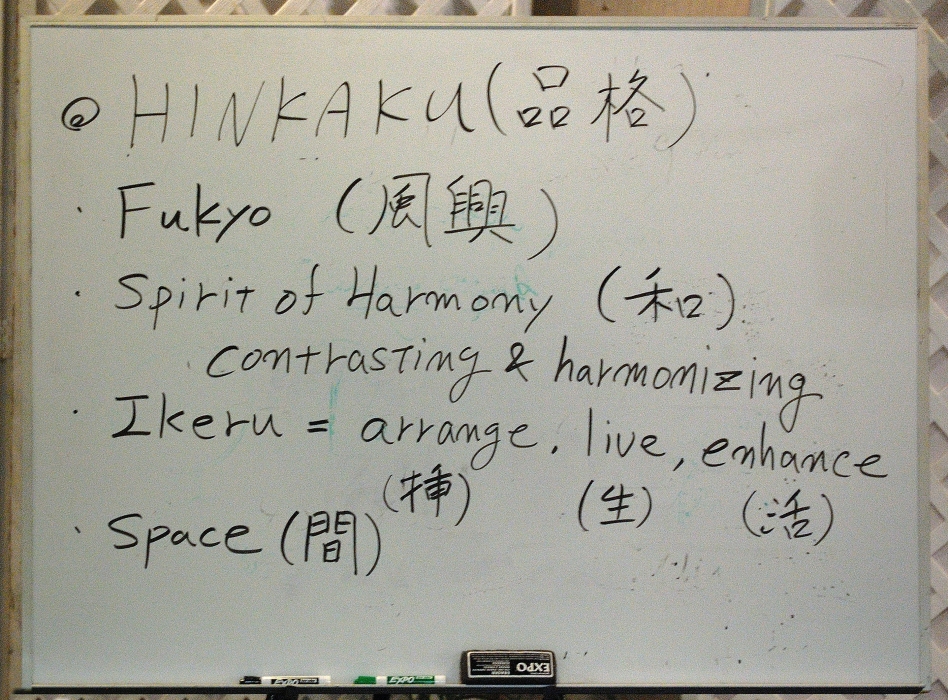 ◎ HINKAKU (品格)
· Fukyo (風興)
· Spirit of Harmony (和)
contrasting & harmonizing
· Ikeru = arrange, live, enhance
(挿) (生) (活)
· Space (間)
EXPO
EXPO
EXPO